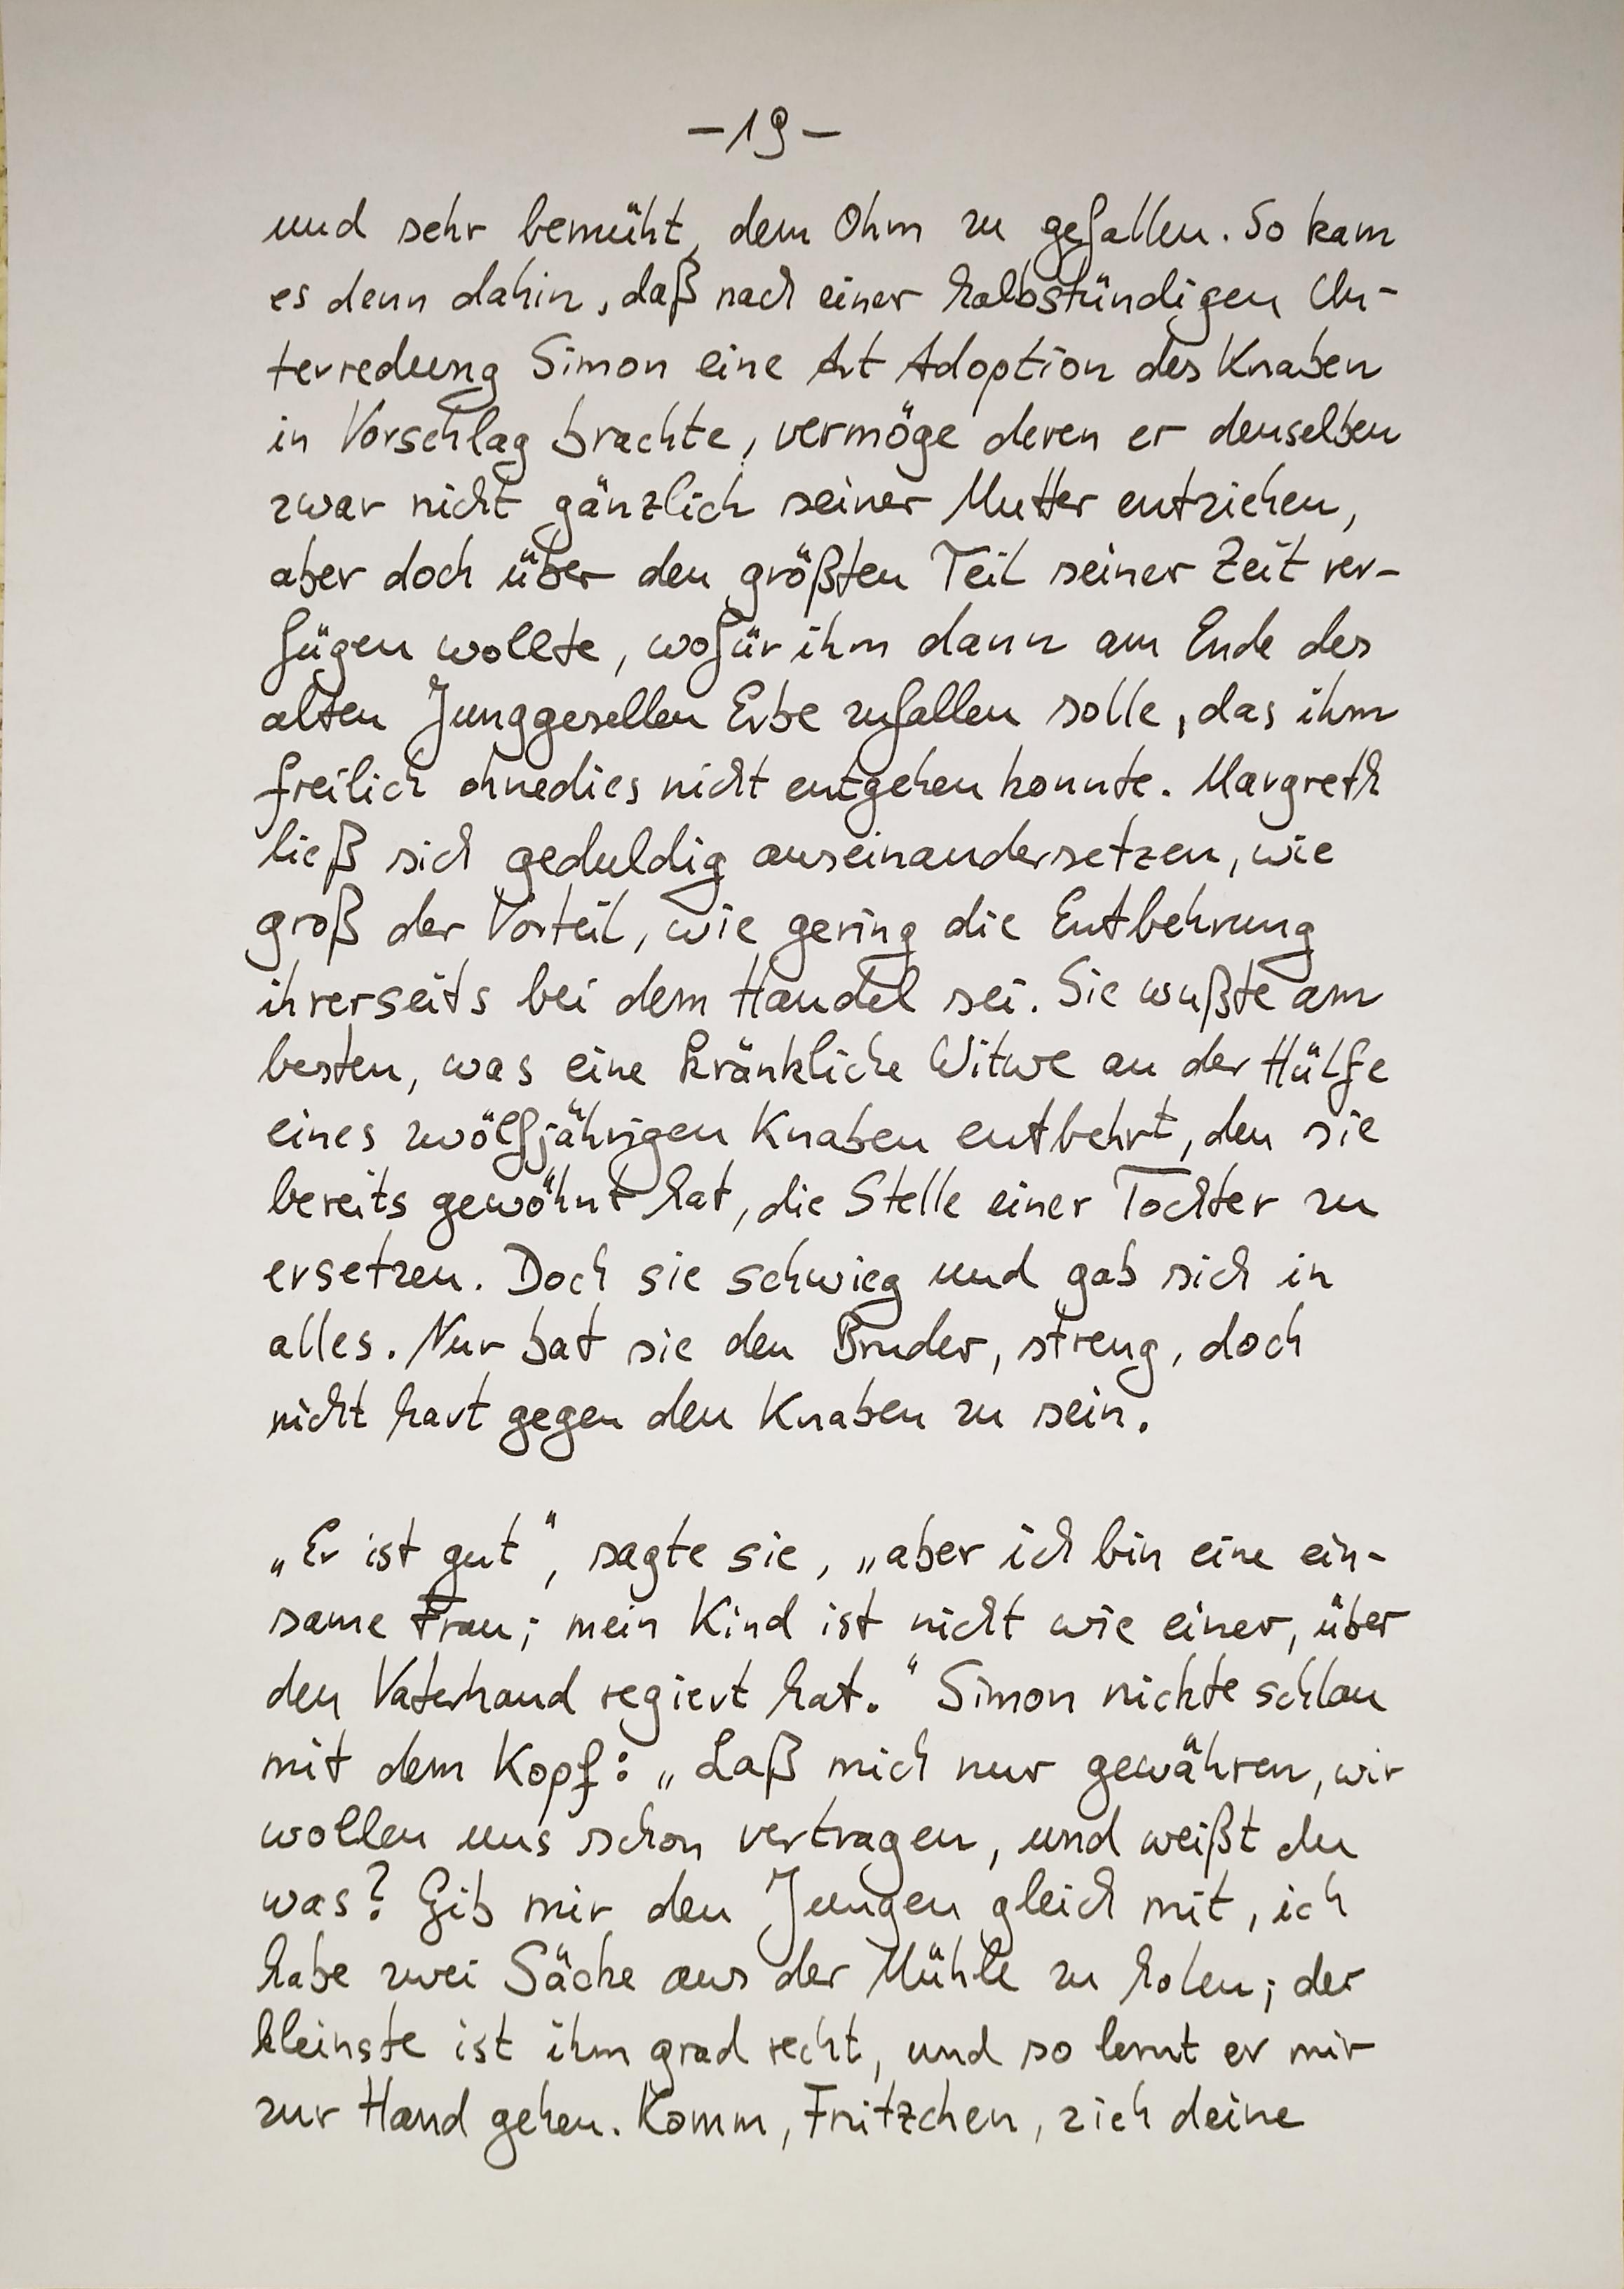 – 19 –
und sehr bemüht, dem Ohm zu gefallen. So kam
es denn dahin, daß nach einer halbstündigen Un-
terredung Simon eine Art Adoption des Knaben
in Vorschlag brachte, vermöge deren er denselben
zwar nicht gänzlich seiner Mutter entziehen,
aber doch über den größten Teil seiner Zeit ver-
fügen wollte, wofür ihm dann am Ende des
alten Junggesellen Erbe zufallen solle, das ihm
freilich ohnedies nicht entgehen konnte. Margreth
ließ sich geduldig auseinandersetzen, wie
groß der Vorteil, wie gering die Entbehrung
ihrerseits bei dem Handel sei. Sie wußte am
besten, was eine kränkliche Witwe an der Hülfe
eines zwölfjährigen Knaben entbehrt, den sie
bereits gewöhnt hat, die Stelle einer Tochter zu
ersetzen. Doch sie schwieg und gab sich in
alles. Nur bat sie den Bruder, streng, doch
nicht hart gegen den Knaben zu sein.
„Er ist gut“, sagte sie, „aber ich bin eine ein-
same Frau; mein Kind ist nicht wie einer, über
den Vaterhand regiert hat.“ Simon nickte schlau
mit dem Kopf: „Laß mich nur gewähren, wir
wollen uns schon vertragen, und weißt du
was? Gib mir den Jungen gleich mit, ich
habe zwei Säcke aus der Mühle zu holen; der
kleinste ist ihm grad recht, und so lernt er mir
zur Hand gehen. Komm, Fritzchen, zieh deine